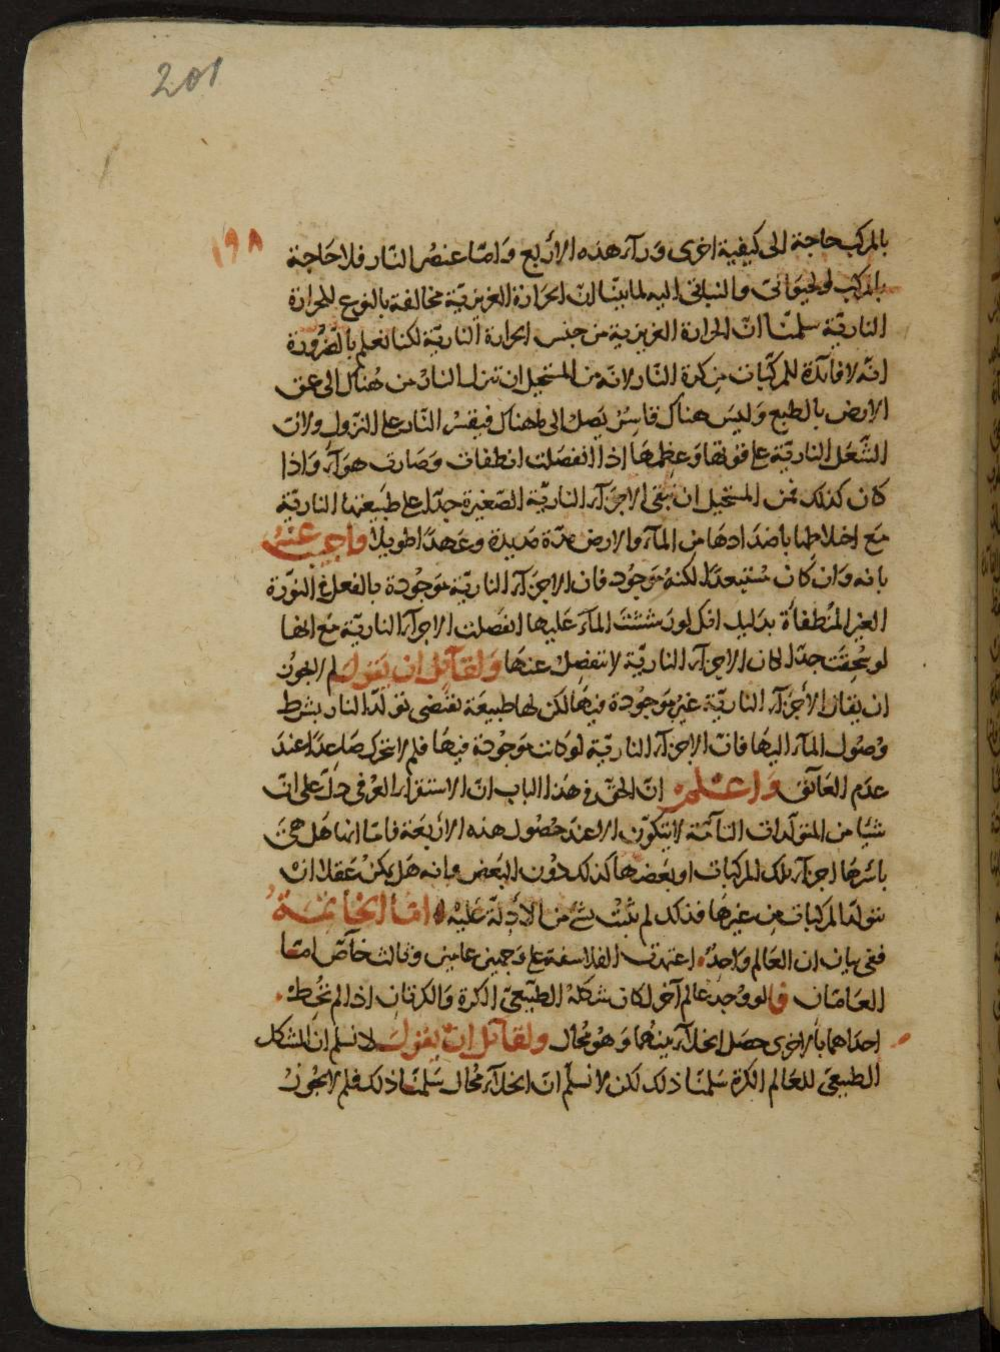 201
١٩٨
بالمركب حاجة الى كيفية اخرى ورآء هذه الاربع وَامّا عنصُر النّار فلا حَاجة
بالمركب لحيَوانى والنباتى اليه لما بيّنا انّ الحَرارة الغريزيّة مخالفة بالنوع للحرارة
الناريّة سلمنَا انّ الحرارة الغريزية من جنس الحرارة الناريّة لكنا نعلم بالضرُورة
انه لا فآئدة للمركّبات من كرة النّار لانه من المستحيل ان تنزل النارُ من هُناك الى عمق
الارض بالطبع وَليسَ هناك قاسِرٌ يَصل الى ما هناك فيقسر النّار على النزول ولانّ
الشعَل الناريّة على قوتها وَعظِمهَا اذا انفصَلت انطفات وَصَارت هوَآءً وَاذا
كان كذلك فمن المستحيل ان تبقى الاجزآء الناريّة الصّغيرة جدّا على طبَيعتها الناريّة
مَع اختلاطها باضدَادهَا من المآء والارض مدّة مديدة وعَهدًا طويلا واجيب عنه
بانه وَان كان مُستبعدًا لكنهُ موجُود فان الاجزآء الناريّة موجُودة بالفعل فى النورَة
الغير المنُطفأة بدَليل انك لو رششتَ المآء عَليها انفَصلت الاجزآء الناريّة مَع انها
لو سُحِقَت جدّا لكان الاجزآء الناريّة لا تنفصِل عنهَا وَلقآئل ان يَقول لم لا يجوُز
ان يقال الأجزآء الناريّة غيرُ موَجُودة فيهَا لكن لها طبيعَة تقتضى تولّد النار بشرط
وصُول المآء اليهَا فانّ الاجزآء الناريّة لو كانت موَجُودة فيهَا فلم لا تتحرك صَاعِدًا عندَ
عدَم العَآئق وَاعْلم انّ الحقّ فى هَذا الباب انّ الاستقرآء العرُفى دلّ على انّ
شيًا من المتولّدات التآمّة لا يتكوّن الا عندَ حصُول هذه الاربَعة فامّا انها هَل هىَ
باسرهَا اجزآء تلك المركبات او بعَضهَا كذلك دُون البَعض وانه هَل يمكنُ عَقلا انْ
تتولّد المركبات من غيرهَا فذلك لم يثبُتْ شئٌ من الأدِلّة عَليْه امّا الخاتمة
ففى بيان ان العَالم وَاحدٌ. اعتمدت الفلاسفة على وَجهين عامين وثالث خآصّ امّا
العَامّان فا لو وُجدَ عالم آخر لكان شكله الطبيَعى الكرة وَالكرتان اذا لم تحُط
احداهما بالاخرى حصَل الخلآء بينهُما وَهوَ مُحال ولقآئل ان يقول لا نسلم ان الشكل
الطبيعى للعَالم الكرة سَلمناَ ذلك لكن لا نسلّم انّ الخلآء مُحال سَلمنَا ذلك فلم لا يجُوز